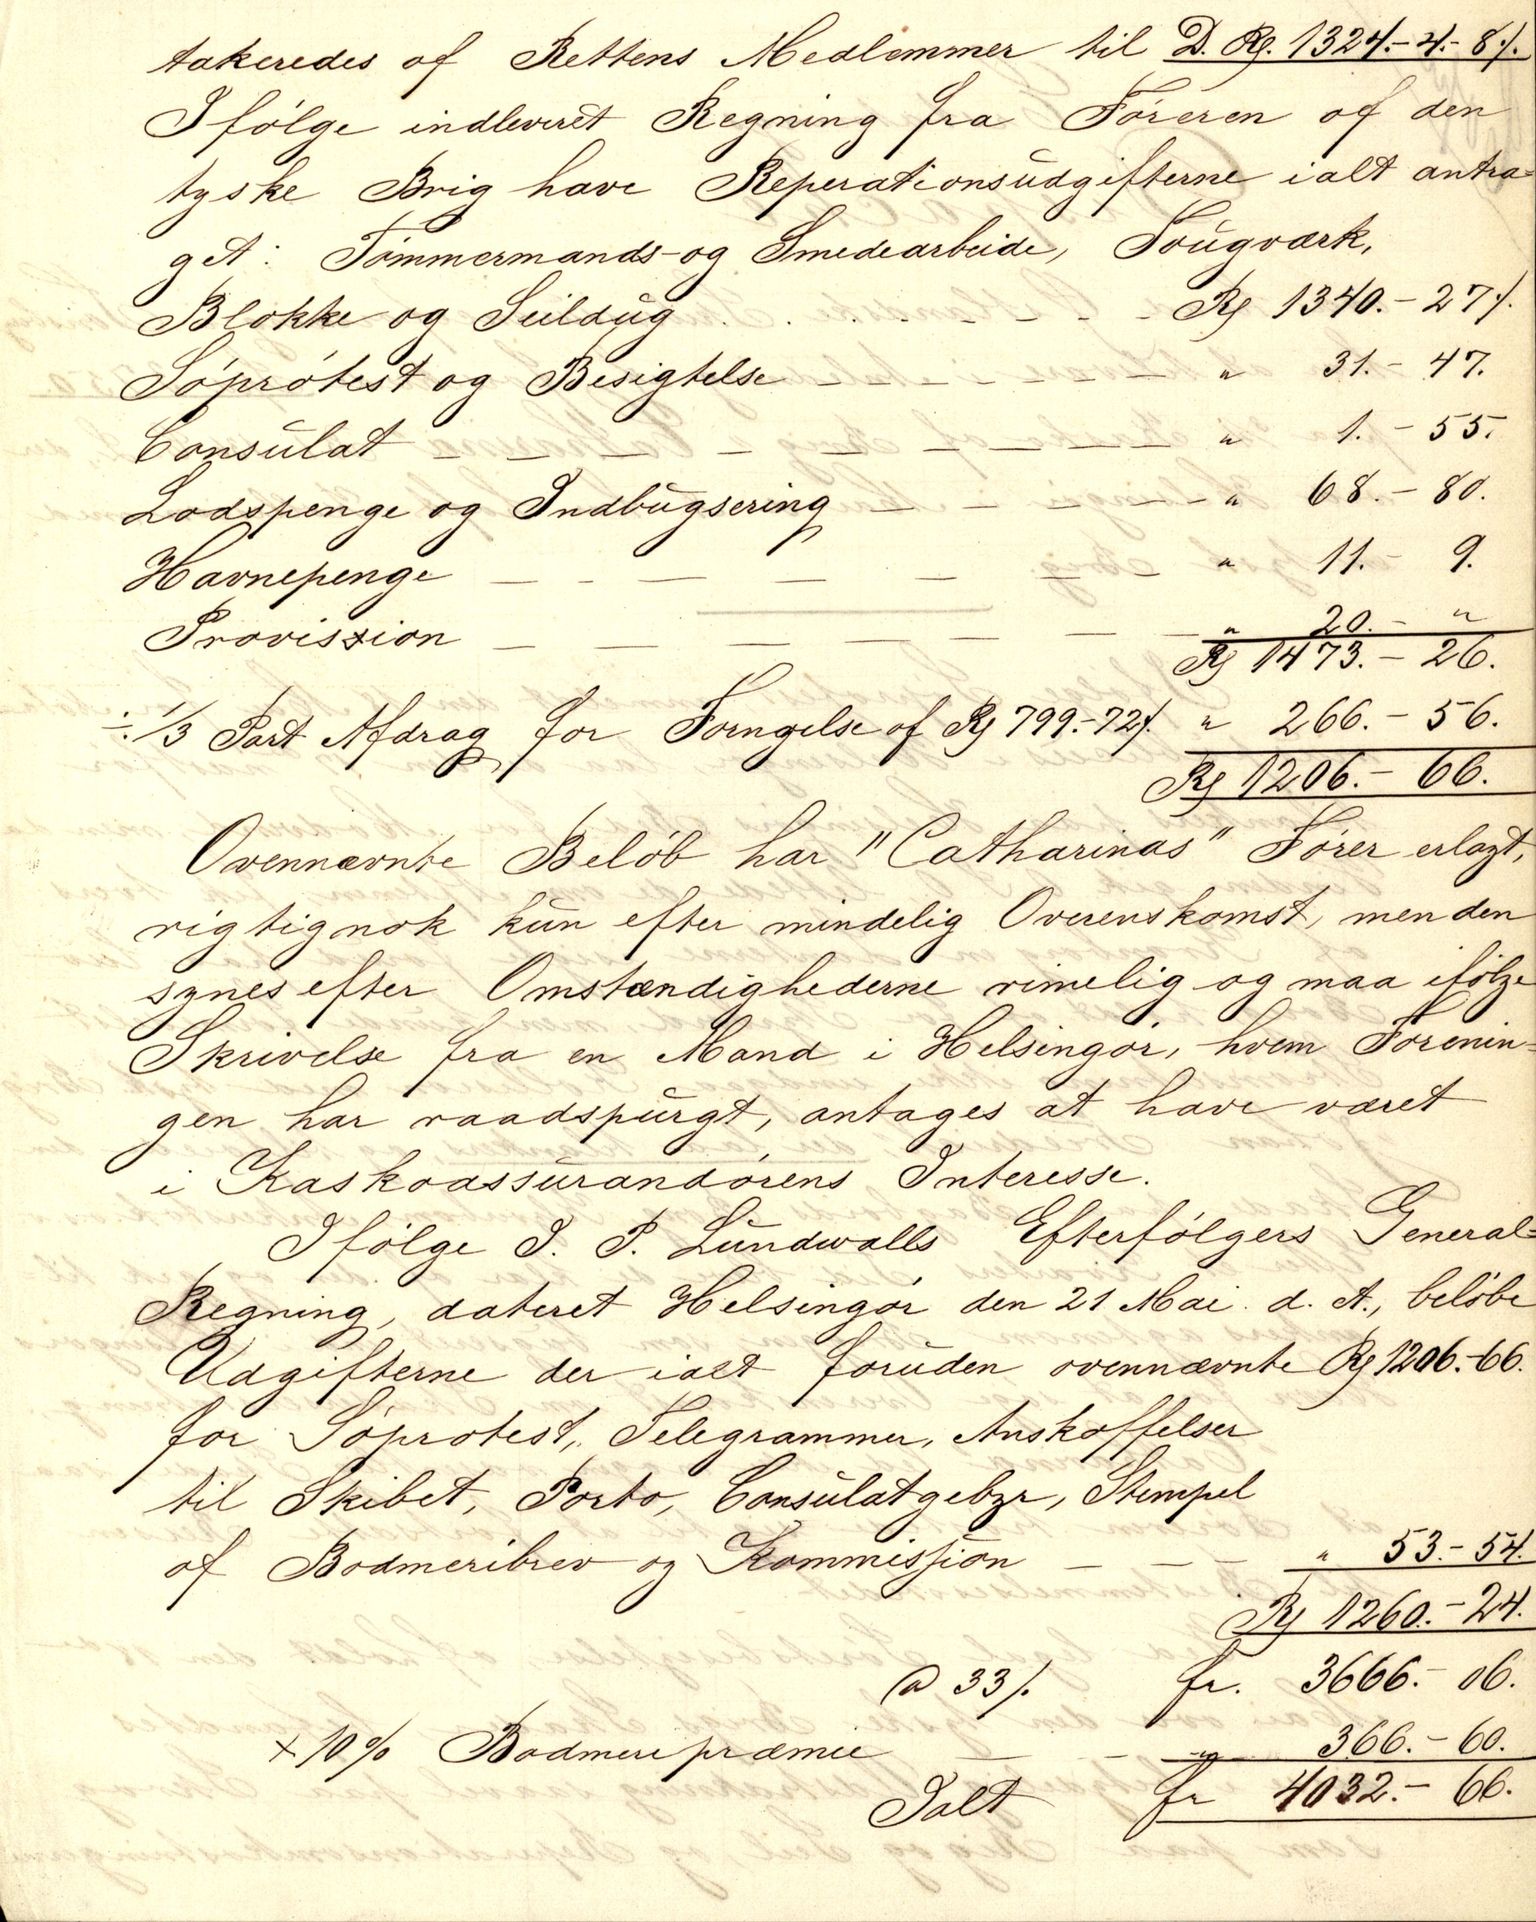 takeredes af Rettens Medlemmer til D. Rg. 1324.-4.-8/.
Ifölge indleveret Regning fra Föreren af den
tyske Brig have Reperationsudgifterne ialt andra-
get: Tömmermands- og Smedearbeide, Tougværk,
Blokke og Seildug . . . . . Rg 1340.-27/.
Söprotest og Besigtelse — — — — " 31.-47.
Consulat — — — — — " 1.-55.
Lodspenge og Indbugsering — — — " 68.-80.
Havnepenge — — — — — " 11.- 9.
Provision — — — — — " 20.- "
Rg 1473.-26.
÷ 1/3 Part Afdrag for Forngelse af Rg 799.-72/. " 266.-56.
Rg 1206.-66.
Ovennævnte Belöb har "Catharinas" Förer erlagt,
rigtignok kun efter mindelig Overenskomst, men den
synes efter Omstændighederne rimelig og maa ifölge
Skrivelse fra en Mand i Helsingör, hvem Forenin-
gen har raadspurgt, antages at have været
i Kaskoassurandörens Interesse.
Ifölge I. P. Lundwalls Efterfölgers General-
Regning, dateret Helsingör den 21 Mai d. A., belöbe
Udgifterne der ialt foruden ovennævnte Rg 1206.-66.
for Söprotest, Telegrammer, Anskaffelser
til Skibet, Porto, Consulatgebyr, Stempel
af Bodmeribrev og Kommission — — — " 53.-54.
Rg 1260.-24.
@ 33/. fr. 3666.-06.
+ 10% Bodmeripræmie — — — " 366.-60.
Ialt fr 4032.-66.